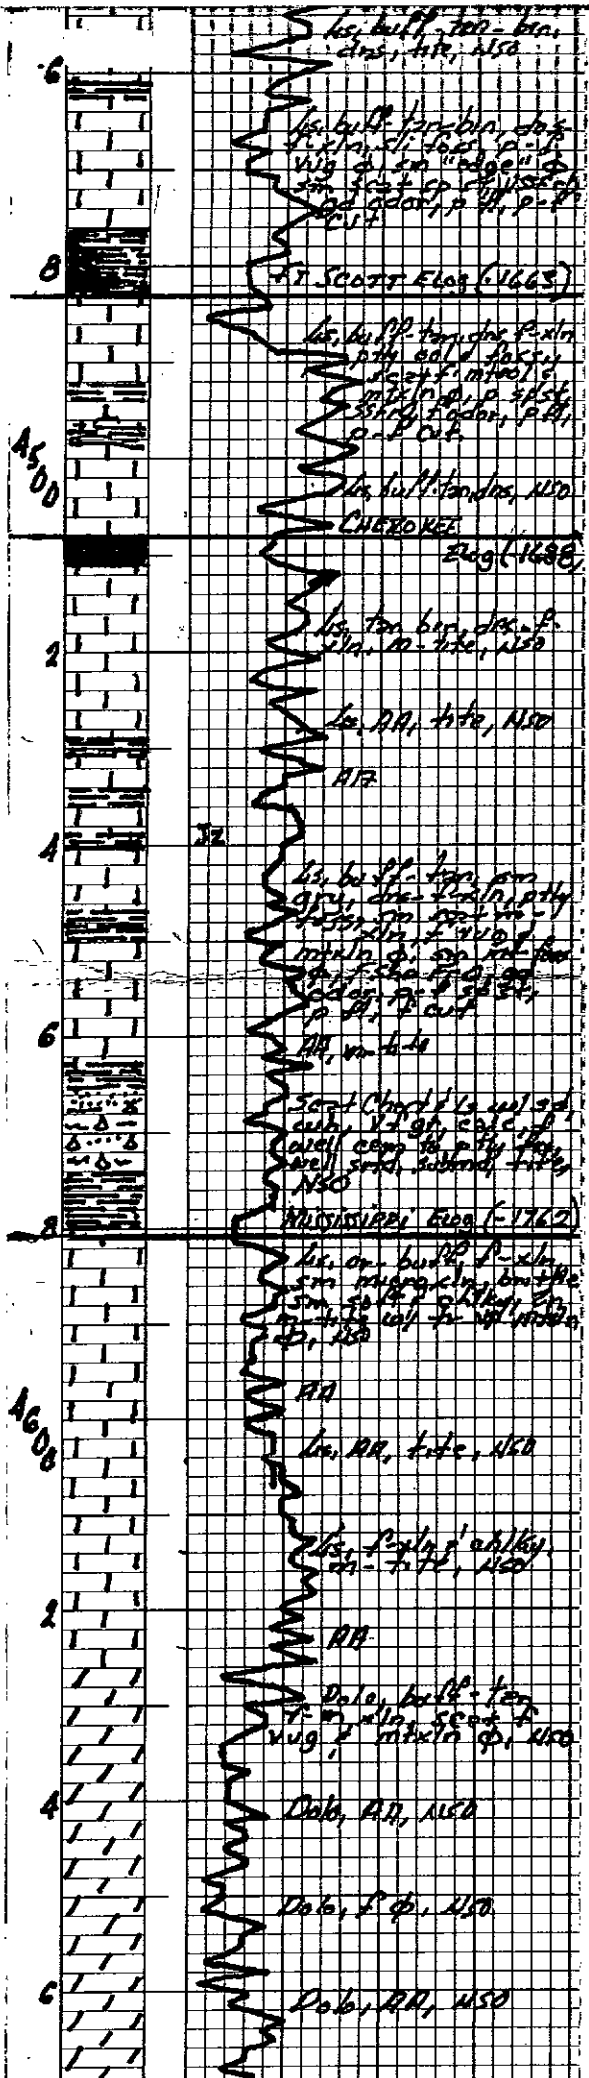 Ls, buff-tan-brn,
dns, tite, NSO
6
Ls, buff-tan-brn, dns-
f-xln, sli foss, p-f
vug ϕ, sm "edge" ϕ
sm scat
gd odor, p flt, p-f
cut
8
FT SCOTT Elog (-1663)
Ls, buff-tan, dns, f-xln
ptly oolc foss,
scat f introol &
mtxln ϕ, p spst,
f odor, p flt,
p-f cut
4500
Ls, buff-tan, dns, NSO
CHEROKEE
Elog (-1688)
Ls, tan brn, dns-f-
xln, m-tite, NSO
2
Ls, AA, tite, NSO
AA
Jz
4
Ls, buff-tan, sm
gry, dns-f-xln, ptly
foss, sm
xln, f vug &
mtxln ϕ, sm foss
ϕ, f sho F O, gd
odor, p-f spst,
p flt, f cut
6
AA, m-tite
Scat Chert & Ls w/ sd,
vf gr, calc, p
well cem to ptly
well srtd, submd, tite,
NSO
MISSISSIPPI Elog (-1762)
8
Ls, buff, f-xln,
sm microxln, brittle
sm soft & chlky,
m-tite w/ mtxln
ϕ, NSO
AA
4600
Ls, AA, tite, NSO
Ls, f-xln & chlky,
m-tite, NSO
2
AA
Dolo, buff-tan,
f-m xln, scat f
vug & mtxln ϕ, NSO
4
Dolo, AA, NSO
Dolo, f ϕ, NSO
6
Dolo, AA, NSO